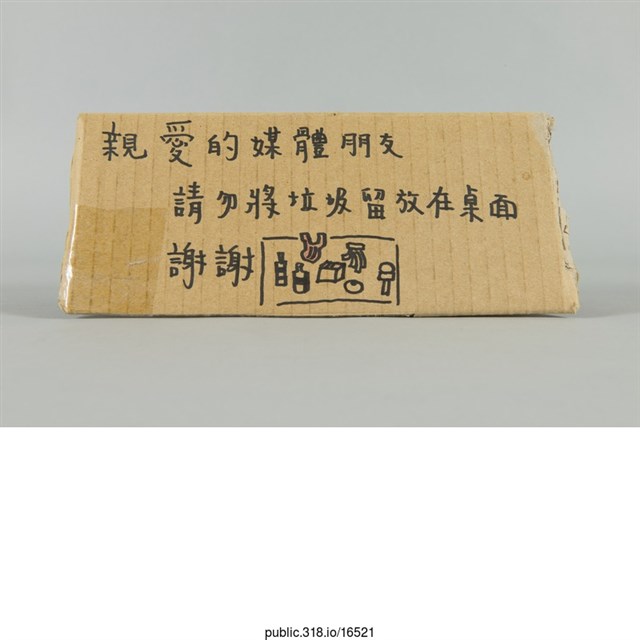 親愛的媒體朋友
請勿將垃圾留放在桌面
謝謝
public.318.io/16521